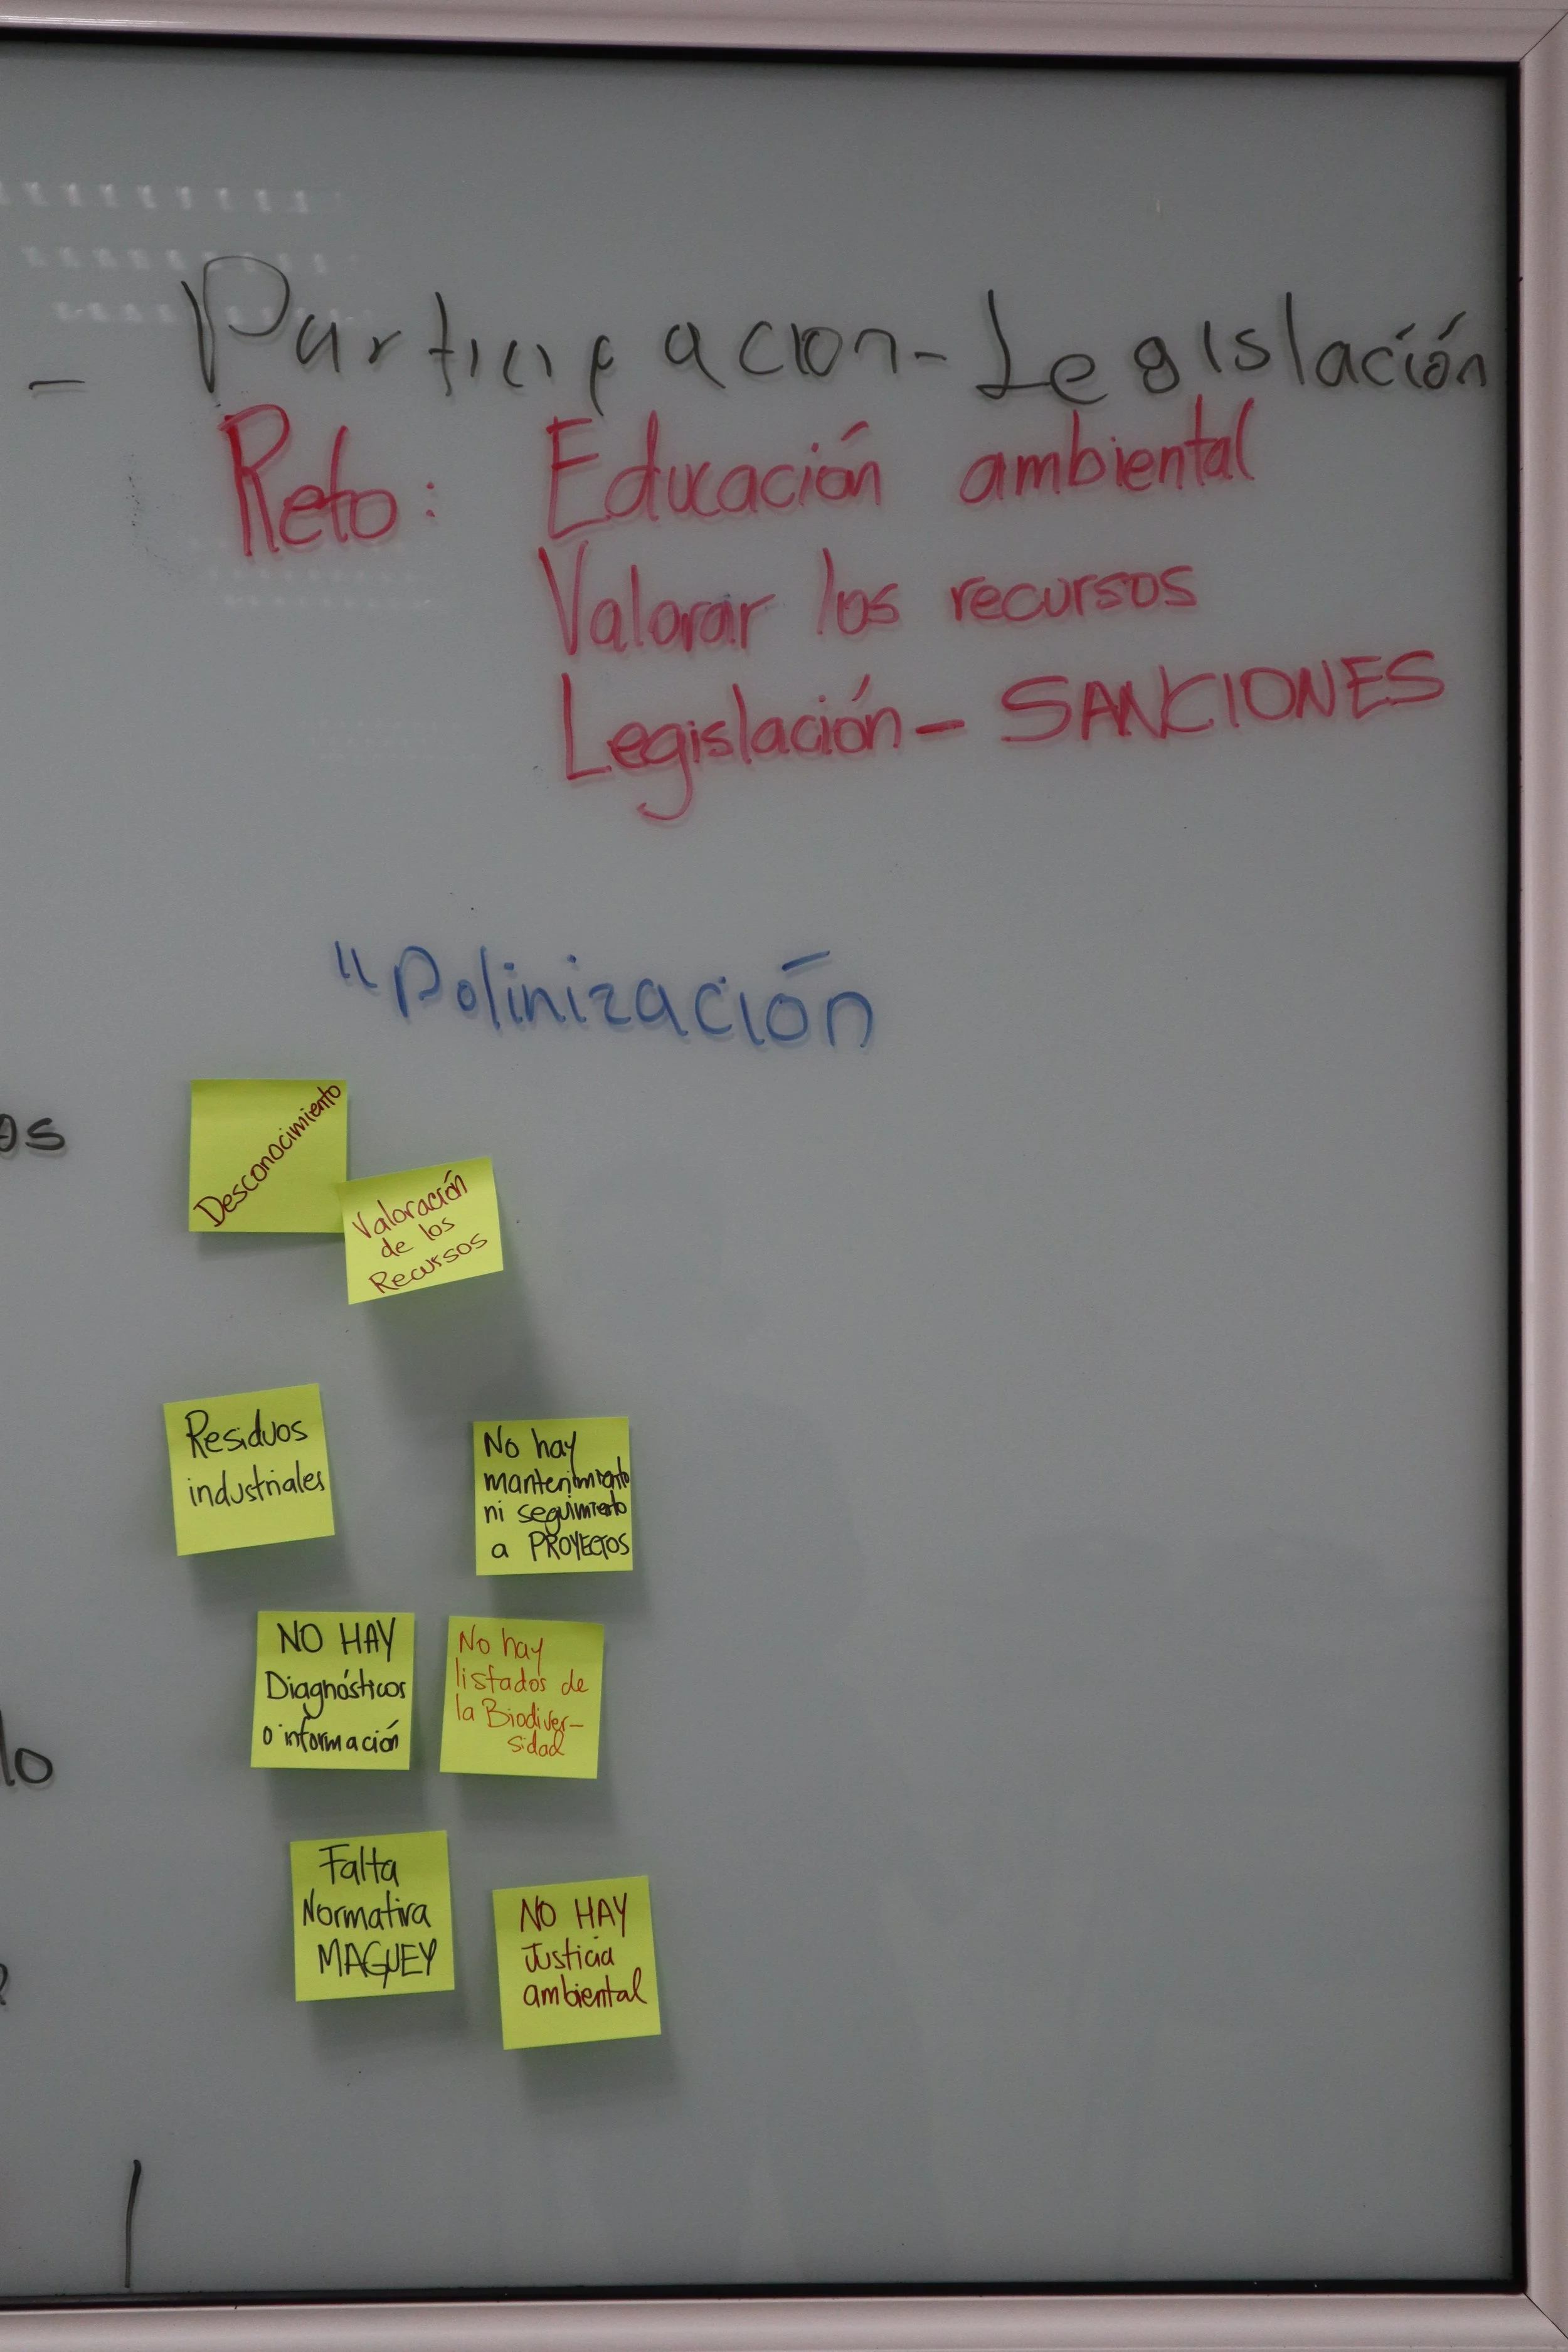 - Participacion - Legislación
Reto: Educación ambiental
Valorar los recursos
Legislación - SANCIONES
"Polinización
os
Desconocimiento
Valoración
de los
Recursos
Residuos
industriales
No hay
mantenimiento
ni seguimiento
a PROYECTOS
NO HAY
Diagnósticos
o información
No hay
listados de
la Biodiver-
sidad
lo
Falta
Normativa
MAGUEY
NO HAY
Justicia
ambiental